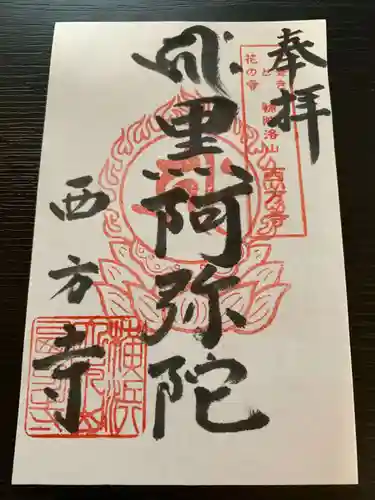 奉拝
補陀洛山 西方寺
花の寺
黒阿弥陀
西方寺
横浜